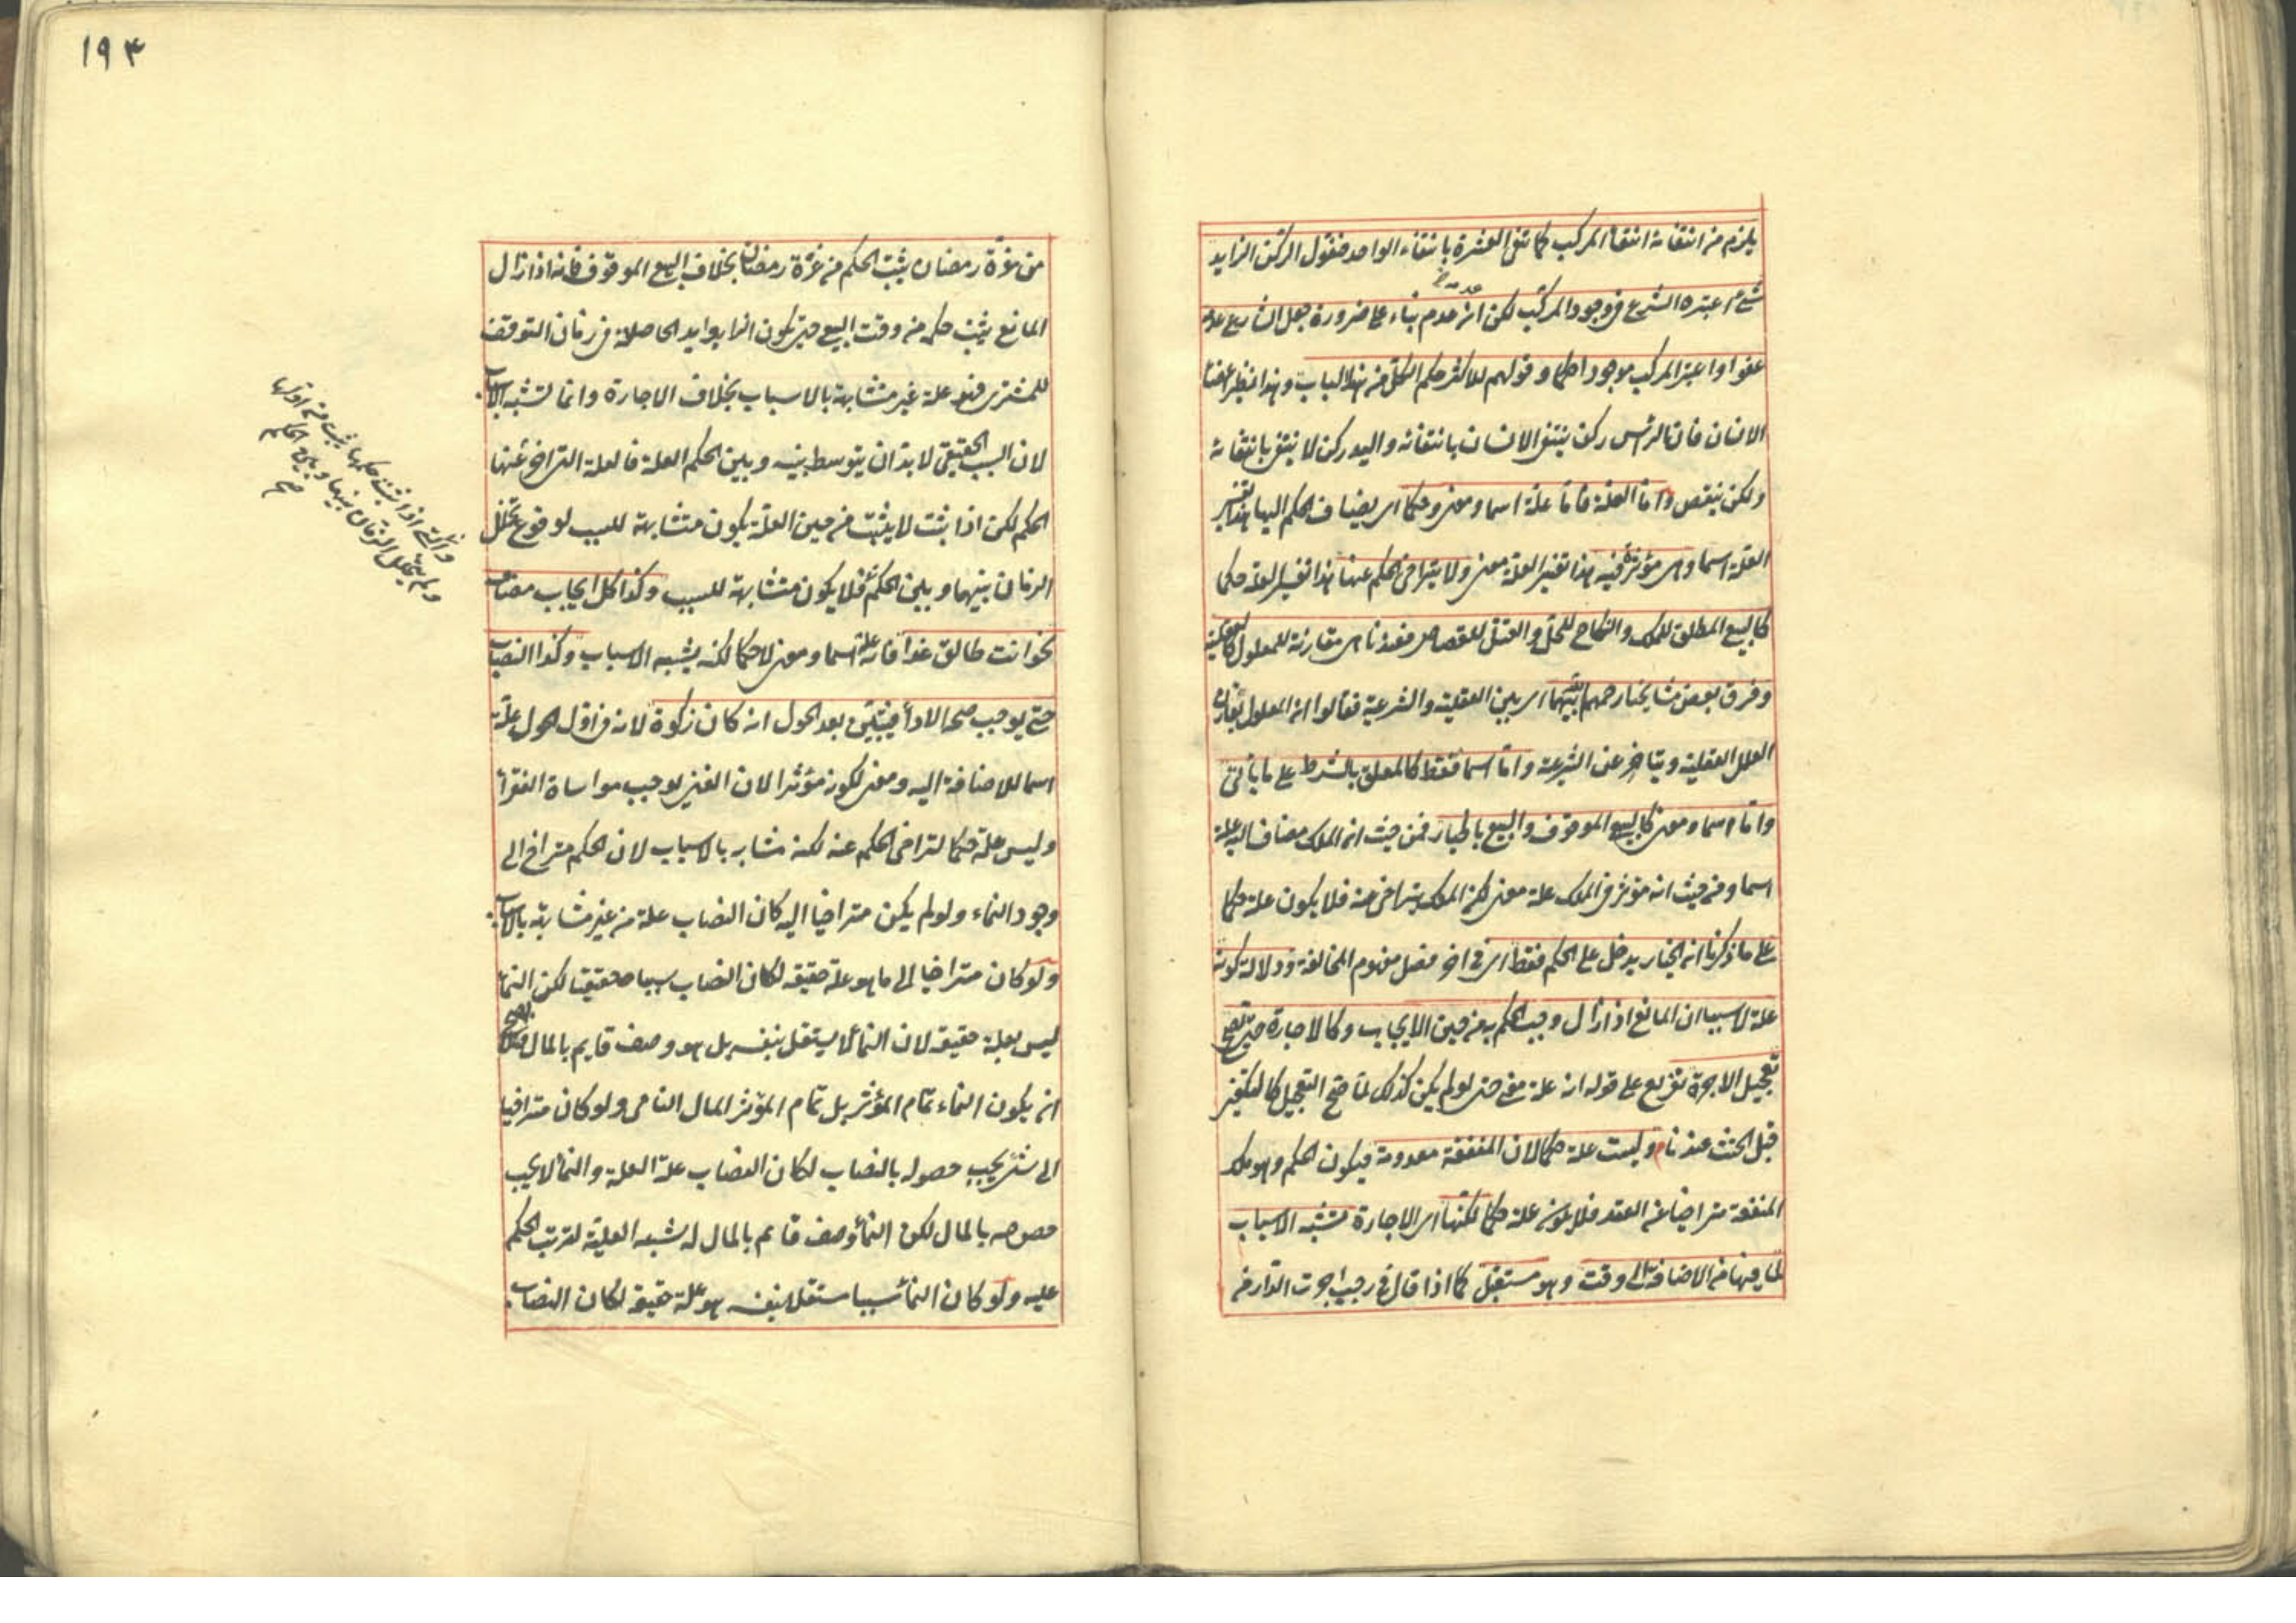 يلزم من انتفائه انتفاء المركب كما تنتفى العشرة بانتفاء الواحد فنقول الركن الزايد
شئ اعتبره الشرع فى وجود المركب لكن ان عدم بناء على ضرورة جعل الشارع عدمه
عفوا واعتبر المركب موجودا حكما وقولهم للاكثر حكم الكل من هذا الباب وهذا نظير اعضاء
الانسان فان الرأس ركن ينتفى الانسان بانتفائه واليد ركن لا ينتفى بانتفائه
ولكن ينقص واما العلة فاما علة اسما ومعنى وحكما اى يضاف الحكم اليها هذا تفسير
العلة اسما وهى مؤثرة فيه هذا تفسير العلة معنى ولا يتراخى الحكم عنها هذا تفسير العلة حكما
كالبيع المطلق للملك والنكاح للحل والقتل للقصاص فعندنا هى مقارنة للمعلول كالعقلية
وفرق بعض مشايخنا رحمهم الله بينهما اى بين العقلية والشرعية فقالوا ان المعلول يقارن
العلل العقلية ويتاخر عن الشرعية واما اسما فقط كالمعلق بالشرط على ما يأتى
واما اسما ومعنى كالبيع الموقوف والبيع بالخيار فمن حيث ان الملك مضاف اليه علة
اسما ومن حيث انه مؤثر فى الملك علة معنى لكن الملك يتراخى عنه فلا يكون علة حكما
على ما ذكرنا ان الخيار يدخل على الحكم فقط اى فى اخر فصل مفهوم المخالفة ودلالة كونه
علة لا سببا ان المانع اذا زال وجب الحكم به من حين الايجاب وكالاجارة حتى صح
تعجيل الاجرة تفريع على قوله انه علة معنى حتى لو لم يكن كذلك لما صح التعجيل كالتكفير
قبل الحنث عندنا وليست علة حكما لان المنفعة معدومة فيكون الحكم وهو ملك
المنفعة متراخيا عن العقد فلا يكون علة حكما لكنها اى الاجارة تشبه الاسباب
لما فيها من الاضافة الى وقت وهو مستقبل كما اذا قال فى رجب اجرت الدار من
١٩٣
من غرة رمضان يثبت الحكم من غرة رمضان بخلاف البيع الموقوف فانه اذا زال
المانع يثبت حكمه من وقت البيع حتى تكون الزوايد الحاصلة فى زمان التوقف
للمشترى فهو علة غير مشابهة بالاسباب بخلاف الاجارة وانما تشبه الاسباب
لان السبب الحقيقى لا بد ان يتوسط بينه وبين الحكم العلة فالعلة التى يتراخى عنها
الحكم لكن اذا ثبت لا يثبت من حين العلة يكون متشابهة للسبب لوقوع تخلل
الزمان بينها وبين الحكم فلا يكون متشابهة للسبب وكذا كل ايجاب مضاف
نحو انت طالق غدا فانه علة اسما ومعنى لا حكما لكنه يشبه الاسباب وكذا النصاب
حتى يوجب صحة الاداء فيتبين بعد الحول انه كان زكوة لانه فى اول الحول علة
اسما للاضافة اليه ومعنى لكونه مؤثرا لان الغنى يوجب مواساة الفقراء
وليس علة حكما لتراخى الحكم عنه لكنه مشابه بالاسباب لان الحكم متراخ الى
وجود النماء ولو لم يكن متراخيا اليه كان النصاب علة من غير مشابهة بالاسباب
ولو كان متراخيا الى ما هو علة حقيقة لكان النصاب سببا حقيقيا لكن النماء
ليس بعلة حقيقة لان النماء لا يستقل بنفسه بل هو وصف قايم بالمال
ان يكون النماء تمام المؤثر بل تمام المؤثر المال النامى ولو كان متراخيا
الى شئ يجب حصوله بالنصاب لكان النصاب علة العلة والنماء لا يجب
حصوله بالمال لكن النماء وصف قايم بالمال له شبه العلية لترتب الحكم
عليه ولو كان النماء سببا مستقلا بنفسه هو علة حقيقة لكان النصاب
والتى اذا ثبت حكمها يثبت من اولها
ولم يتخلل الزمان بينها وبين الحكم
صح